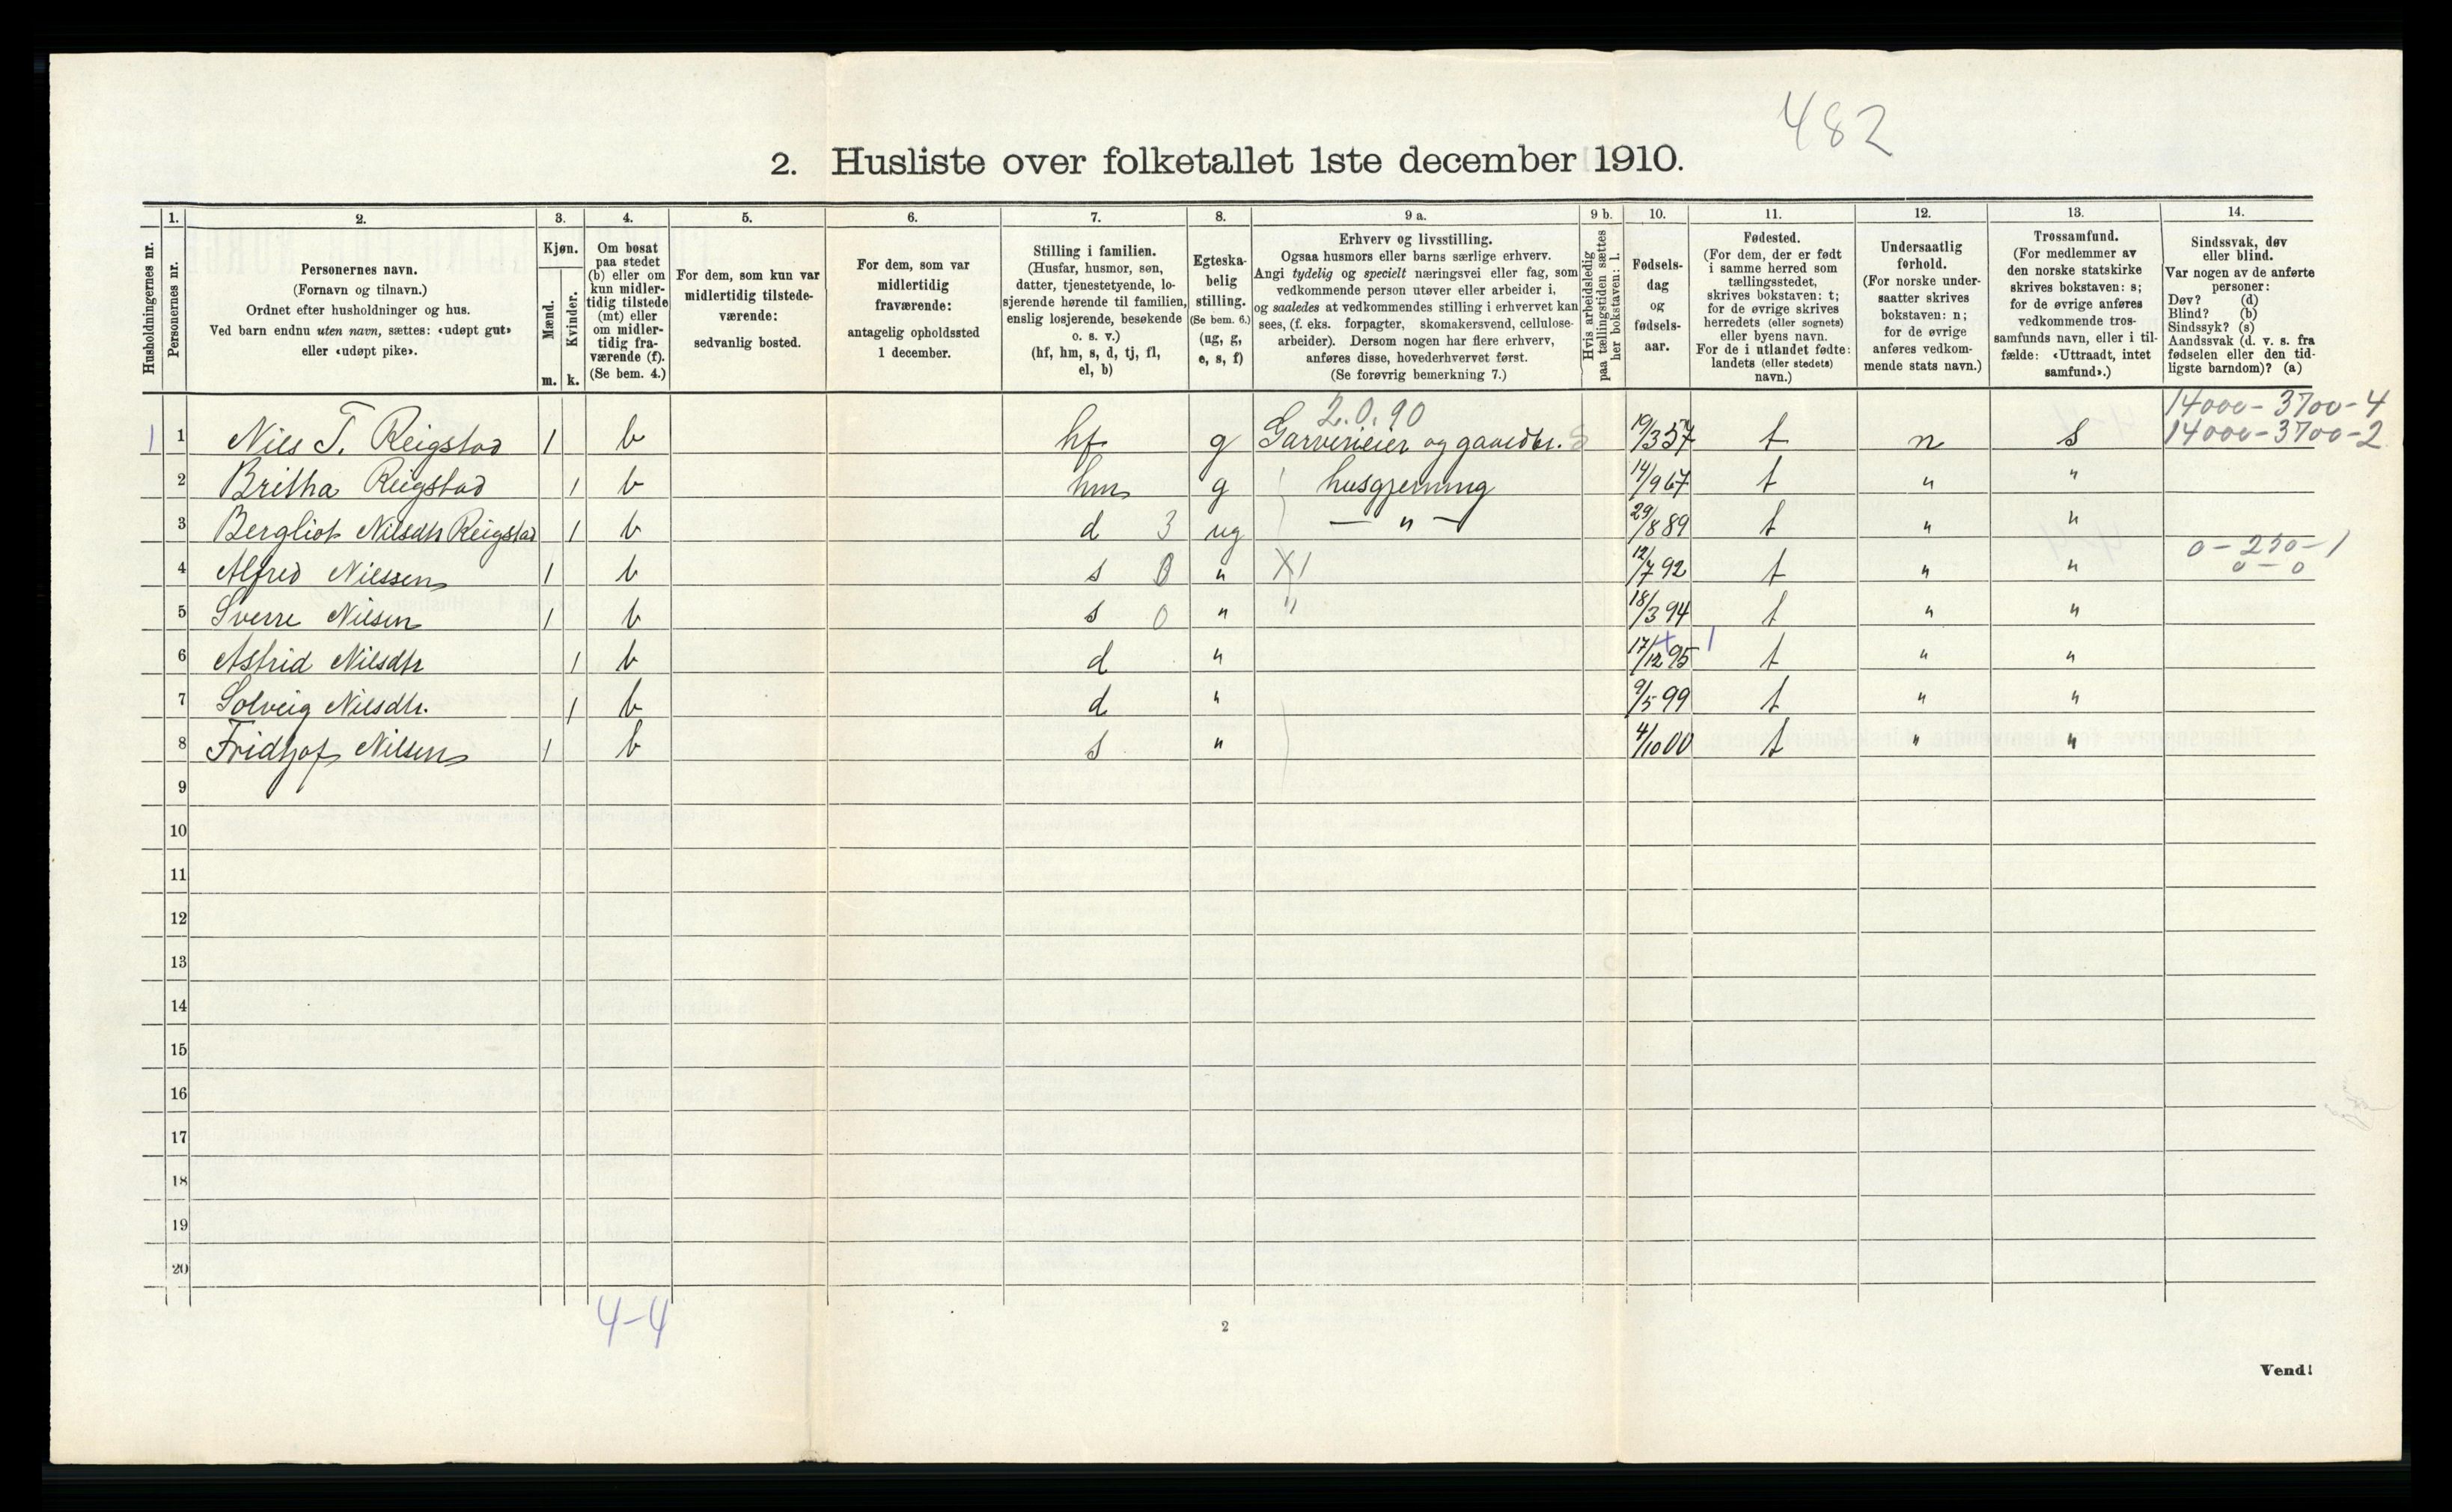 482
2. Husliste over folketallet 1ste december 1910.
Husholdningernes nr.
1.
Personernes nr.
2.
Personernes navn.
(Fornavn og tilnavn.)
Ordnet efter husholdninger og hus.
Ved barn endnu uten navn, sættes: «udøpt gut»
eller «udøpt pike».
3.
Kjøn.
Mænd.
Kvinder.
m. k.
4.
Om bosat
paa stedet
(b) eller om
kun midler-
tidig tilstede
(mt) eller
om midler-
tidig fra-
værende (f).
(Se bem. 4.)
5.
For dem, som kun var
midlertidig tilstede-
værende:
sedvanlig bosted.
6.
For dem, som var
midlertidig
fraværende:
antagelig opholdssted
1 december.
7.
Stilling i familien.
(Husfar, husmor, søn,
datter, tjenestetyende, lo-
sjerende hørende til familien,
enslig losjerende, besøkende
o. s. v.)
(hf, hm, s, d, tj, fl,
el, b)
8.
Egteska-
belig
stilling.
(Se bem. 6.)
(ug, g,
e, s, f)
9 a.
Erhverv og livsstilling.
Ogsaa husmors eller barns særlige erhverv.
Angi tydelig og specielt næringsvei eller fag, som
vedkommende person utøver eller arbeider i,
og saaledes at vedkommendes stilling i erhvervet kan
sees, (f. eks. forpagter, skomakersvend, cellulose-
arbeider). Dersom nogen har flere erhverv,
anføres disse, hovederhvervet først.
(Se forøvrig bemerkning 7.)
9 b.
Hvis arbeidsledig
paa tællingstiden sættes
her bokstaven: l.
10.
Fødsels-
dag
og
fødsels-
aar.
11.
Fødested.
(For dem, der er født
i samme herred som
tællingsstedet,
skrives bokstaven: t;
for de øvrige skrives
herredets (eller sognets)
eller byens navn.
For de i utlandet fødte:
landets (eller stedets)
navn.)
12.
Undersaatlig
forhold.
(For norske under-
saatter skrives
bokstaven: n;
for de øvrige
anføres vedkom-
mende stats navn.)
13.
Trossamfund.
(For medlemmer av
den norske statskirke
skrives bokstaven: s;
for de øvrige anføres
vedkommende tros-
samfunds navn, eller i til-
fælde: «Uttraadt, intet
samfund».)
14.
Sindssvak, døv
eller blind.
Var nogen av de anførte
personer:
Døv? (d)
Blind? (b)
Sindssyk? (s)
Aandssvak (d. v. s. fra
fødselen eller den tid-
ligste barndom)? (a)
2.0.90 14000-3700-4
1 1 Nils T. Reigstad 1 b hf g Garverieier og gaardbr. 19/3 57 t n s 14000-3700-2
2 Britha Reigstad 1 b hm g husgjerning 14/9 67 t " "
3 Bergliot Nilsdtr Reigstad 1 b d 3 ug — " — 29/8 89 t " "
4 Alfred Nilssen 1 b s 0 " X1 12/7 92 t " " 0-250-1
0-0
5 Sverre Nilsen 1 b s 0 " " 18/3 94 t " "
6 Astrid Nilsdtr 1 b d " 17/12 95 1 t " "
7 Solveig Nilsdtr. 1 b d " 9/5 99 t " "
8 Fridhjof Nilsen 1 b s " 4/10 00 t " "
9
10
11
12
13
14
15
16
17
18
19
20
4-4
2
Vend!